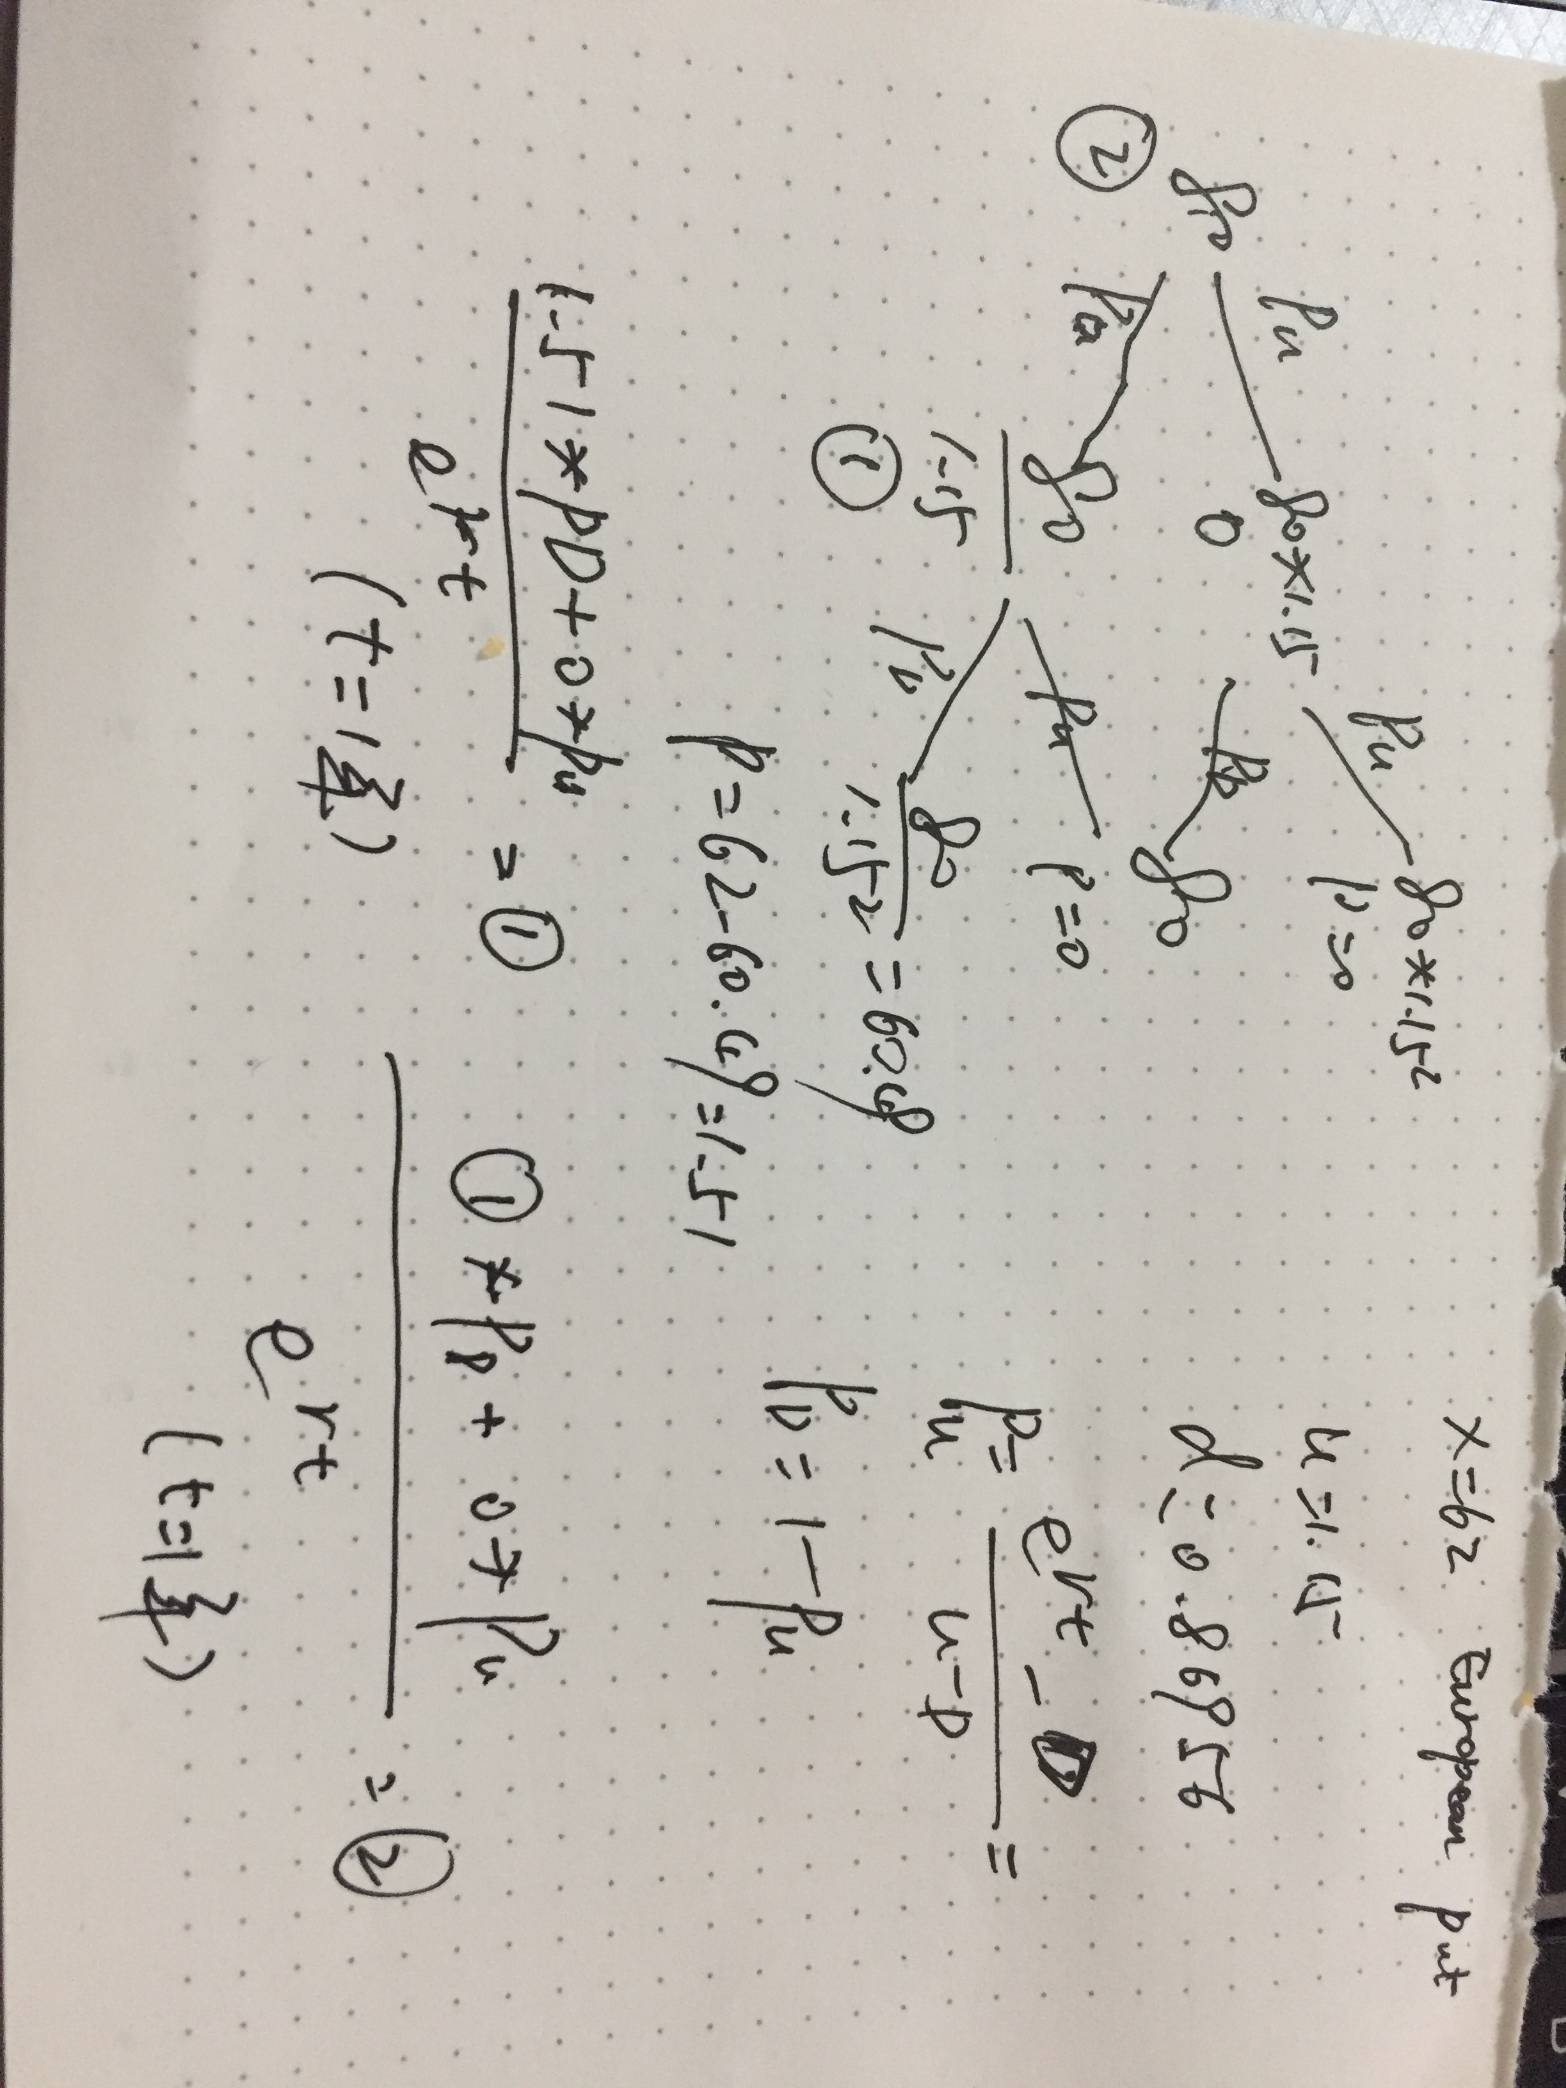 x=62 European put
u=1.15
d=0.86956
Pu = e^rt - D / u-d =
PD = 1-Pu
80
Pu
80*1.15
0
Pu
80*1.15²
P=0
Pd
80
②
Pd
80 / 1.15
①
Pu
P=0
Pd
80 / 1.15² = 60.49
P=62-60.49=1.51
1.51*PD+0*Pu / e^rt = ①
(t=1年)
①*Pd + 0*Pu / e^rt = ②
(t=1年)